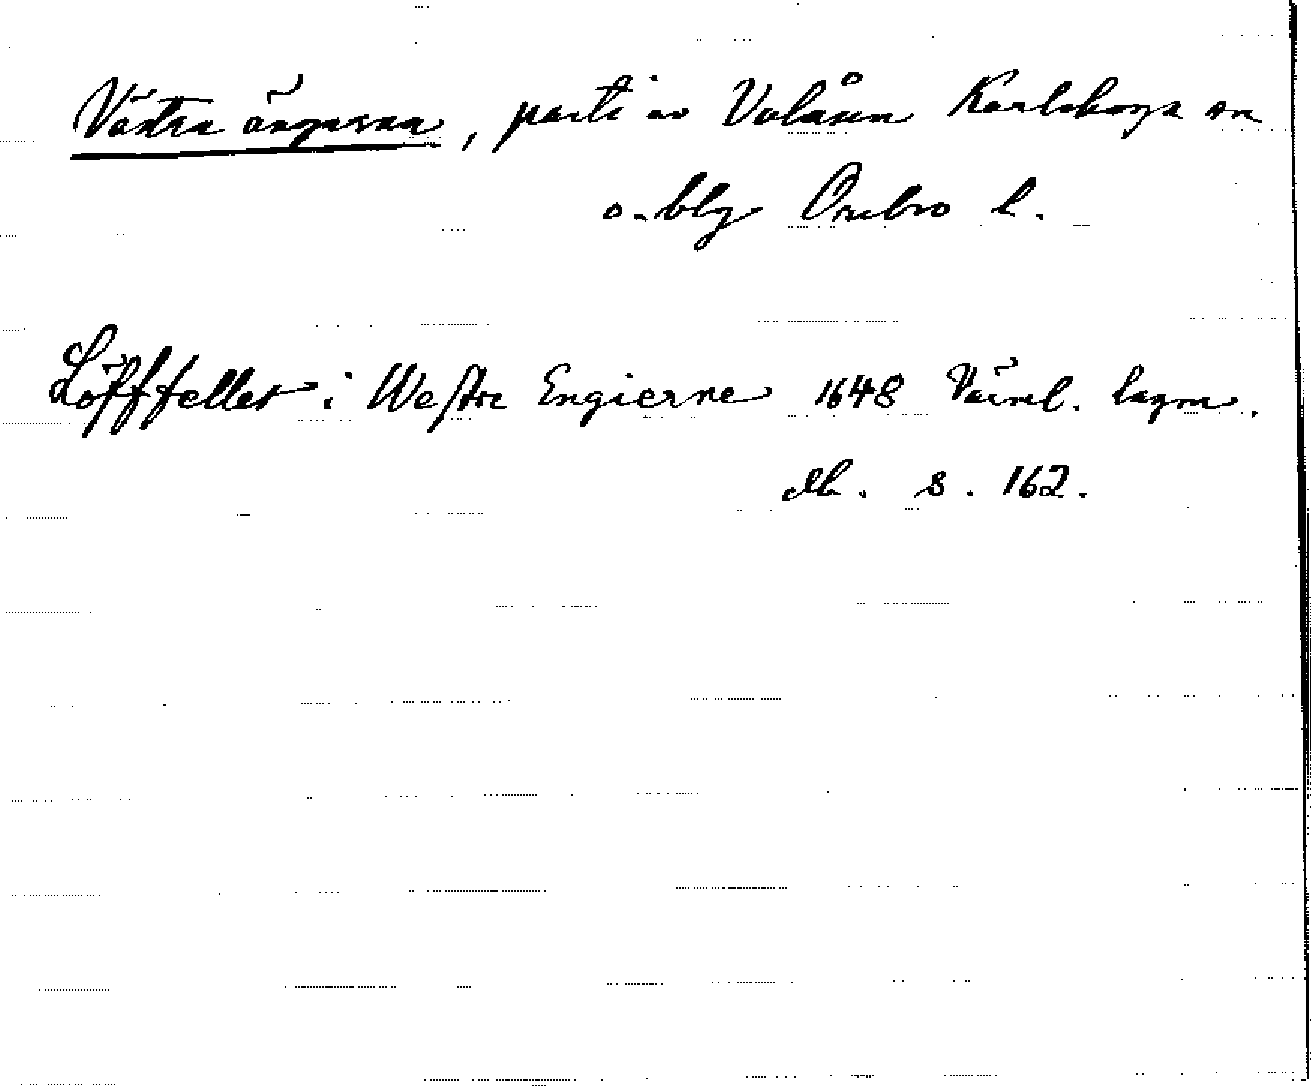 Västra ängarna, parti av Valåsen Karlskoga sn
o. blg Örebro l.
Löfffellet i Westre Engierne 1648 Värml. lagm.
db. s. 162.